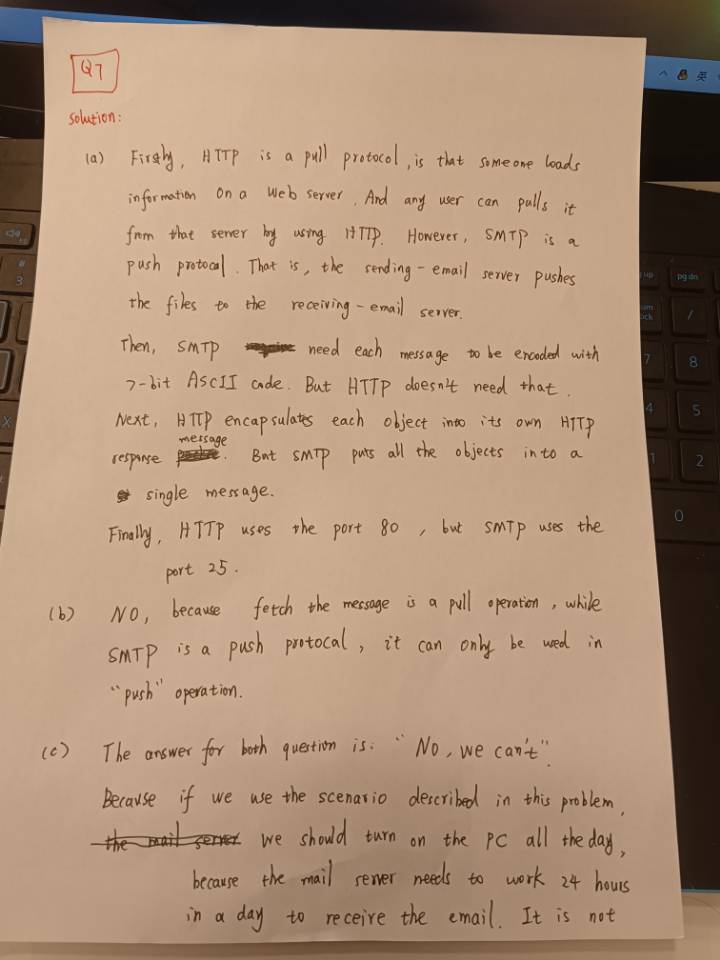 Q7
Solution:
(a) Firstly, HTTP is a pull protocol, is that someone loads
information on a Web server. And any user can pulls it
from that server by using HTTP. However, SMTP is a
push protocal. That is, the sending-email server pushes
the files to the receiving-email server.
Then, SMTP need each message to be encoded with
7-bit ASCII code. But HTTP doesn't need that.
Next, HTTP encapsulates each object into its own HTTP
response message. But SMTP puts all the objects in to a
single message.
Finally, HTTP uses the port 80, but SMTP uses the
port 25.
(b) NO, because fetch the message is a pull operation, while
SMTP is a push protocal, it can only be used in
"push" operation.
(c) The answer for both question is: "No, we can't".
Because if we use the scenario described in this problem,
the mail server we should turn on the PC all the day,
because the mail server needs to work 24 hours
in a day to receive the email. It is not
英
pg dn
3
7
8
4
5
1
2
0
/
X